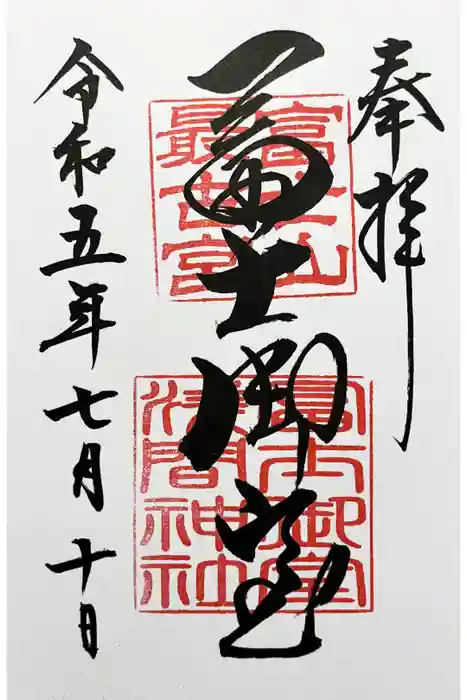 奉拝
富士山
最古宮
冨士御室
冨士御室
浅間神社
令和五年七月十日